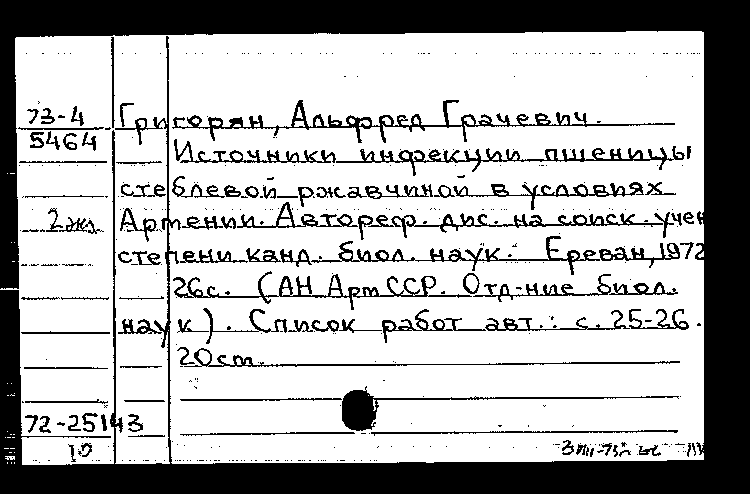 73-4 Григорян, Альфред Грачевич.
5464
Источники инфекции пшеницы
стеблевой ржавчиной в условиях
2 экз. Армении. Автореф. дис. на соиск. учен
степени канд. биол. наук. Ереван, 1972
26с. (АН АрмССР. Отд-ние биол.
наук). Список работ авт.: с. 25-26.
20см.
72-25143
10